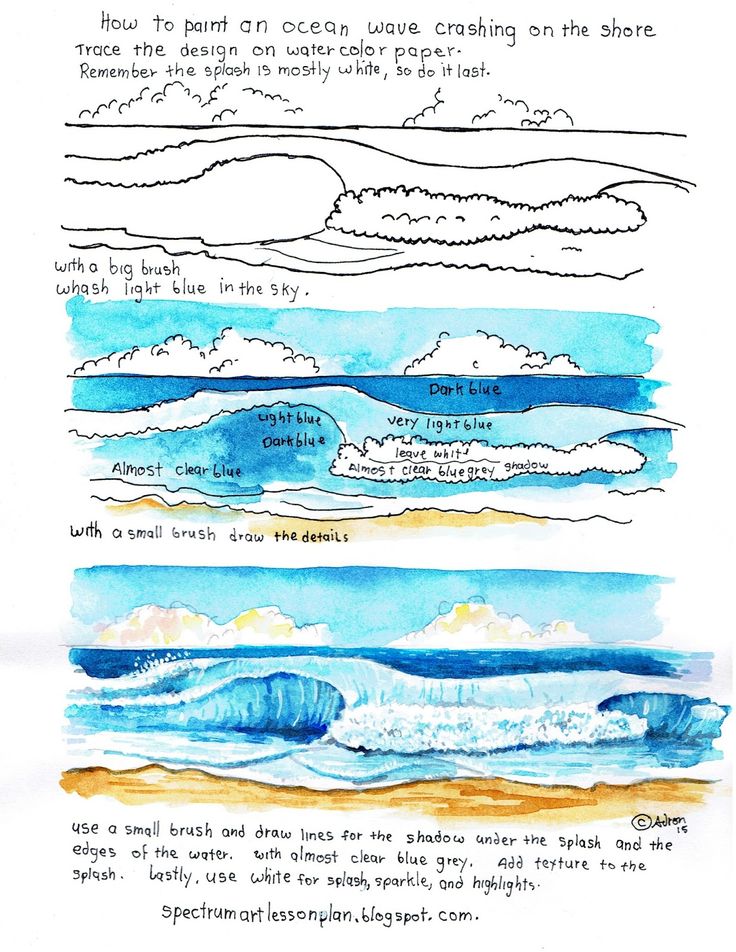 How to paint an ocean wave crashing on the shore
Trace the design on watercolor paper.
Remember the splash is mostly white, so do it last.
with a big brush
whash light blue in the sky.
c
Dark blue
Light blue
very light blue
Dark blue
leave white
Almost clear blue
Almost clear blue grey shadow
with a small brush draw the details
© Adron
15
use a small brush and draw lines for the shadow under the splash and the
edges of the water. with almost clear blue grey. Add texture to the
splash. Lastly, use white for splash, sparkle, and highlights.
spectrumartlessonplan.blogspot.com.